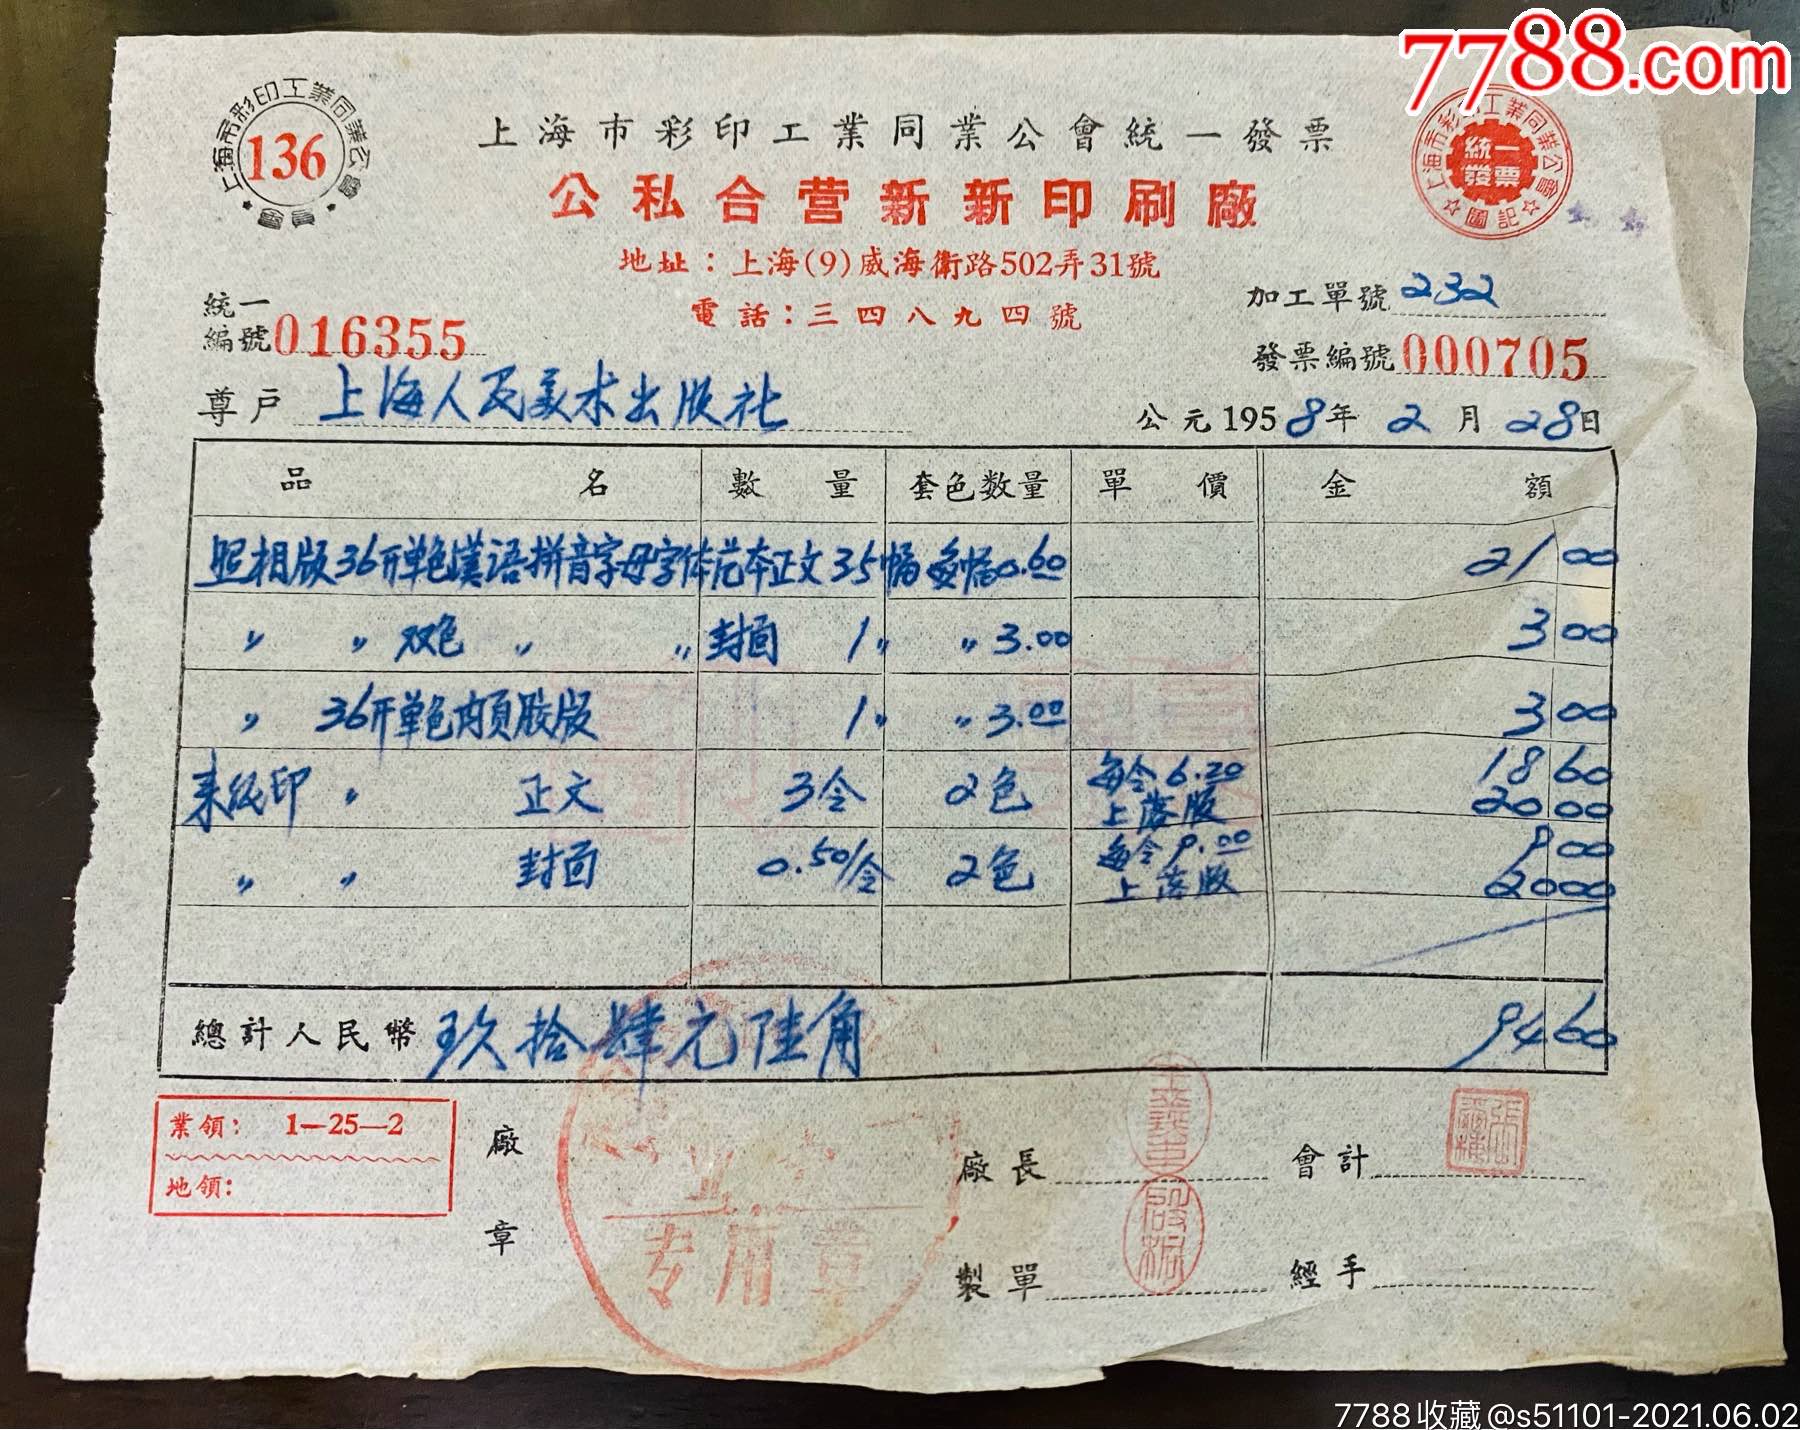 7788.com
上海市彩印工業同業公會 會員
136
上海市彩印工業同業公會統一發票
上海市彩印工業同業公會
統一發票
圖記
公私合营新新印刷廠
地址：上海(9)威海衛路502弄31號
電話：三四八九四號
加工單號 232
統一編號 016355
發票編號 000705
尊戶 上海人民美术出版社
公元1958年2月28日
品名 數量 套色数量 單價 金額
照相版36开单色漢语拼音字母字体范本正文35幅 每幅0.60 21 00
〃 〃 双色 〃 〃 封面 1〃 〃3.00 3 00
〃 36开单色内頁胶版 1〃 〃3.00 3 00
来纸印 〃 正文 3令 2色 每令6.20 18 60
上落版 20 00
〃 〃 封面 0.50/令 2色 每令9.00 9 00
上落版 20 00
總計人民幣 玖拾肆元陆角 94 60
業領：1—25—2
地領：
廠章
专用章
廠長
會計
製單
經手
7788收藏@s51101-2021.06.02